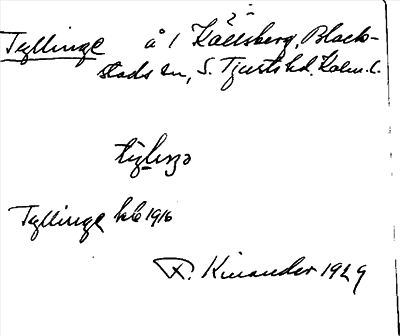 Tyllinge å 1 Källsberg, Black-
stads sn, S. Tjusts hd. Kalm. l.
Tyllinge hb 1916
R. Kinander 1929